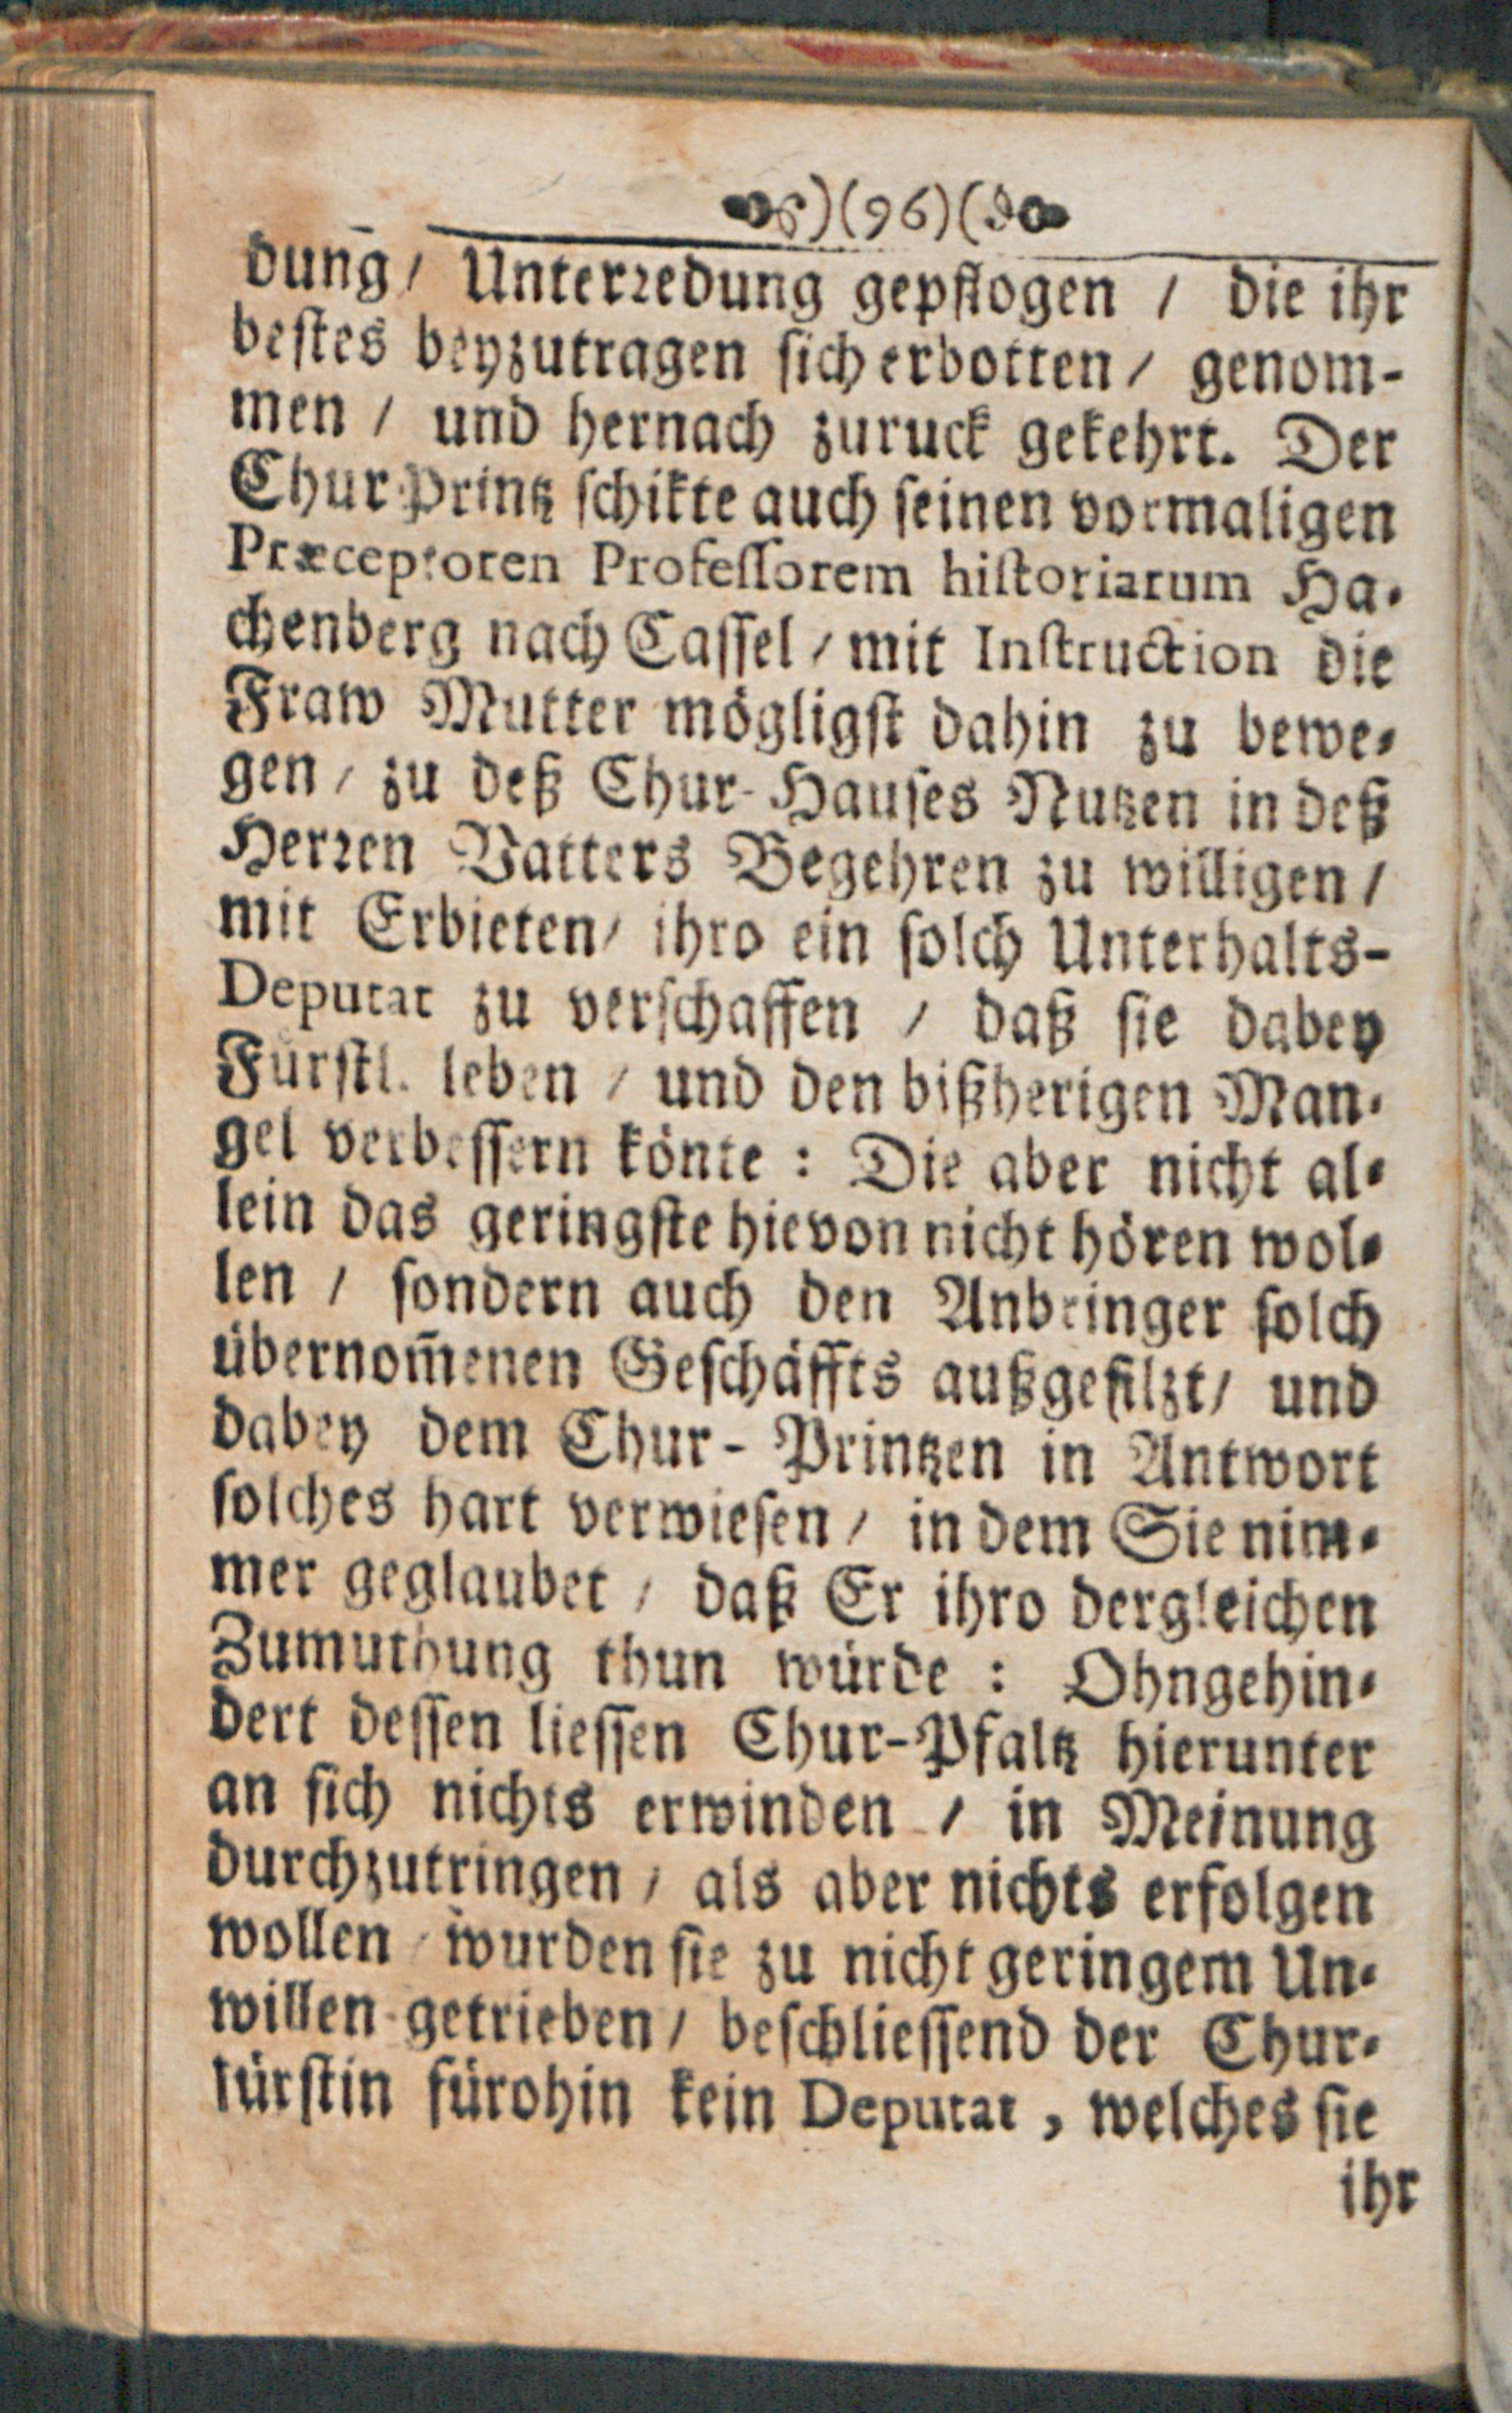 )(96)(
dung / Unterredung gepflogen / die ihr
bestes beyzutragen sich erbotten / genom-
men / und hernach zuruck gekehrt. Der
Chur-Printz schikte auch seinen vormaligen
Præceptoren Professorem historiarum Ha-
chenberg nach Cassel / mit Instruction die
Fraw Mutter mögligst dahin zu bewe-
gen / zu deß Chur-Hauses Nutzen in deß
Herren Vatters Begehren zu willigen /
mit Erbieten / ihro ein solch Unterhalts-
Deputat zu verschaffen / daß sie dabey
Fürstl. leben / und den bißherigen Man-
gel verbessern könte : Die aber nicht al-
lein das geringste hievon nicht hören wol-
len / sondern auch den Anbringer solch
übernom̅enen Geschäffts außgefilzt / und
dabey dem Chur-Printzen in Antwort
solches hart verwiesen / in dem Sie nim-
mer geglaubet / daß Er ihro dergleichen
Zumuthung thun würde : Ohngehin-
dert dessen liessen Chur-Pfaltz hierunter
an sich nichts erwinden / in Meinung
durchzutringen / als aber nichts erfolgen
wollen / wurden sie zu nicht geringem Un-
willen getrieben / beschliessend der Chur-
fürstin fürohin kein Deputat, welches sie
ihr